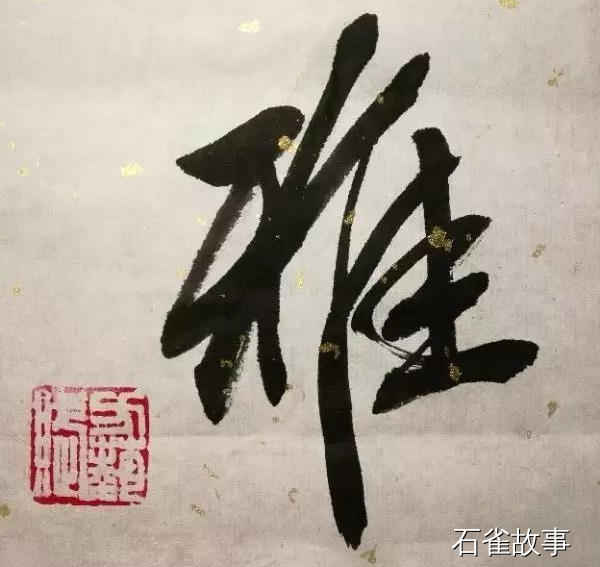 雅
石雀故事